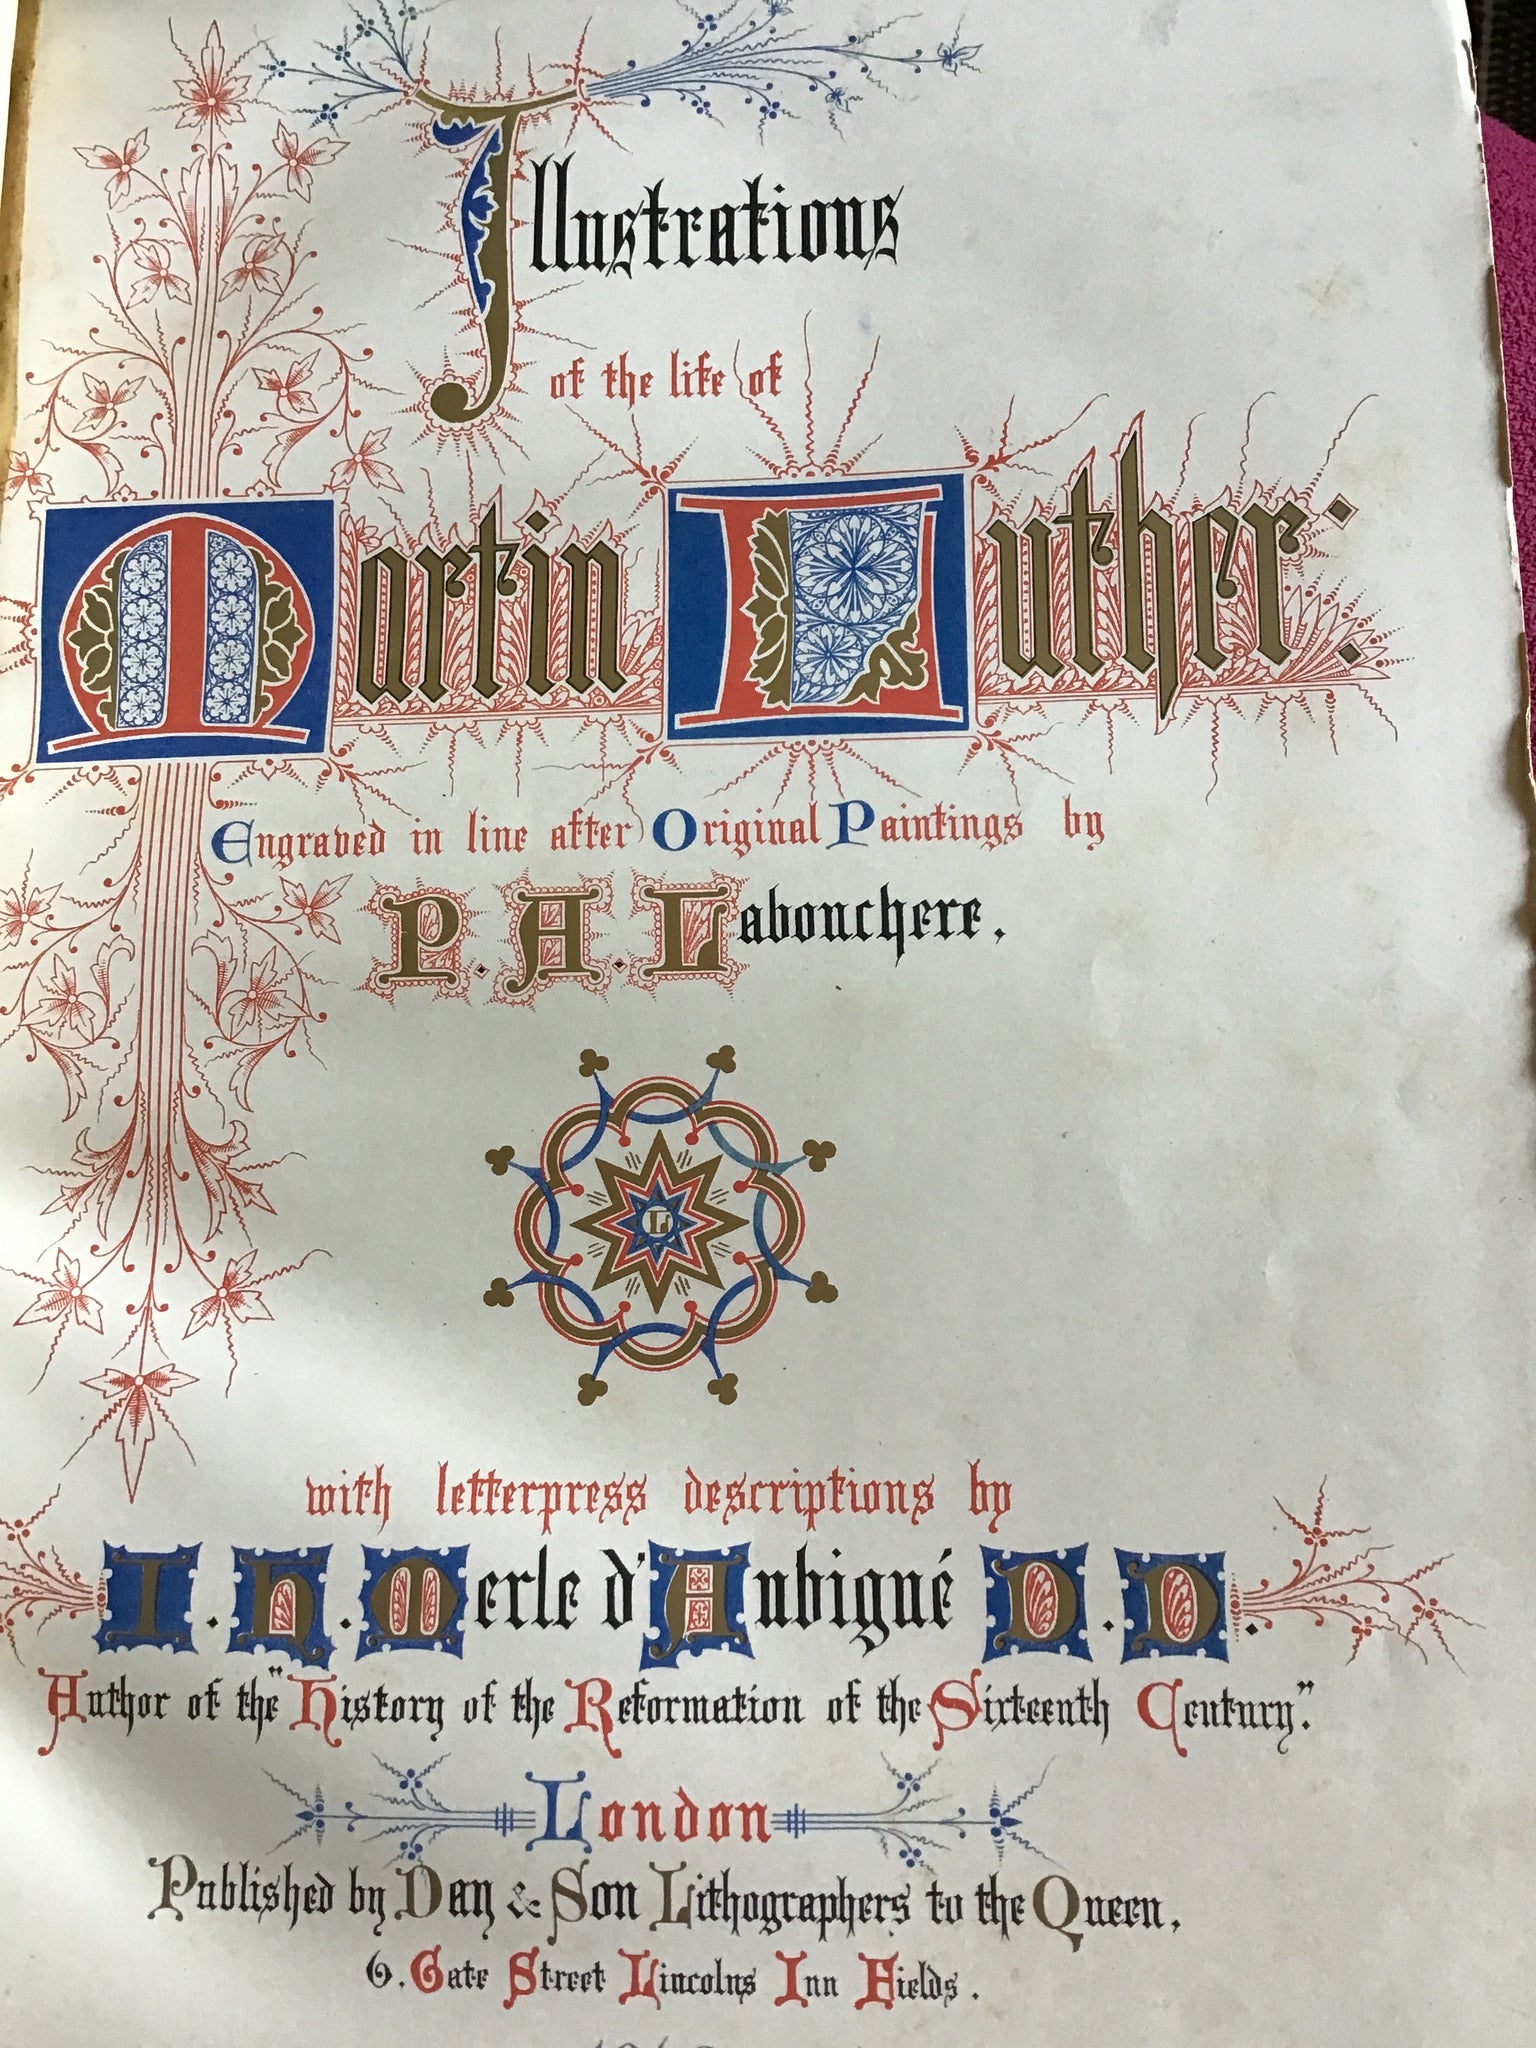 Illustrations
of the life of
Martin Luther:
Engraved in line after Original Paintings by
P. A. Labouchere.
L
with letterpress descriptions by
I. H. Merle d'Aubigné D. D.
Author of the "History of the Reformation of the Sixteenth Century".
London
Published by Day & Son Lithographers to the Queen.
6. Gate Street Lincolns Inn Fields.